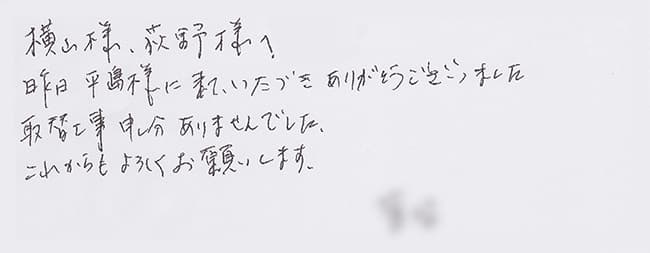 横山様、荻野様へ
昨日 平島様に来ていただき ありがとうございました
取替工事 申し分 ありませんでした、
これからも よろしくお願いします、